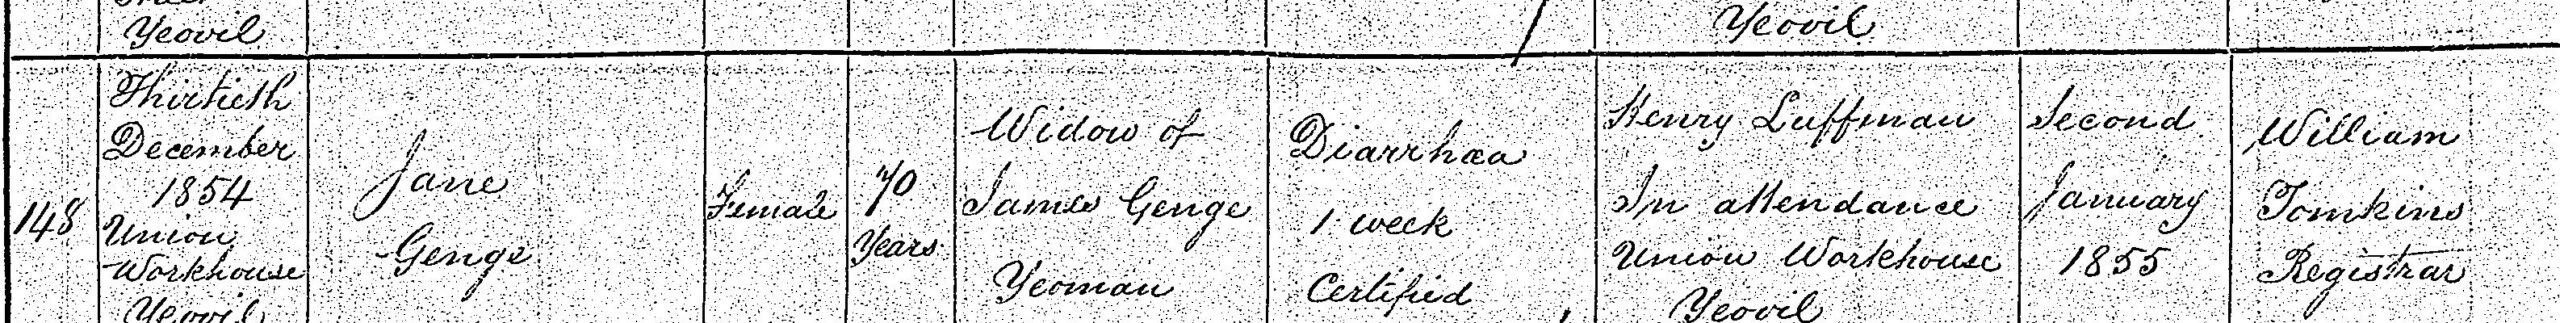 Yeovil
Yeovil
148
Thirtieth
December
1854
Union
Workhouse
Yeovil
Jane
Genge
Female
70
Years
Widow of
James Genge
Yeoman
Diarrhœa
1 week
Certified
Henry Luffman
In attendance
Union Workhouse
Yeovil
Second
January
1855
William
Tomkins
Registrar